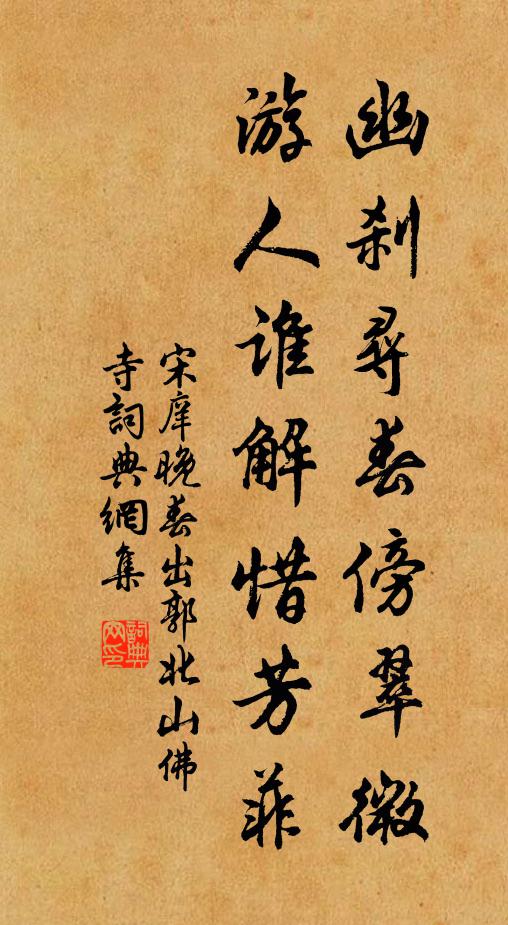 幽剎尋春傍翠微
游人誰解惜芳菲
宋庠晚春出郭北山佛
寺詞典網集
詞典
网印